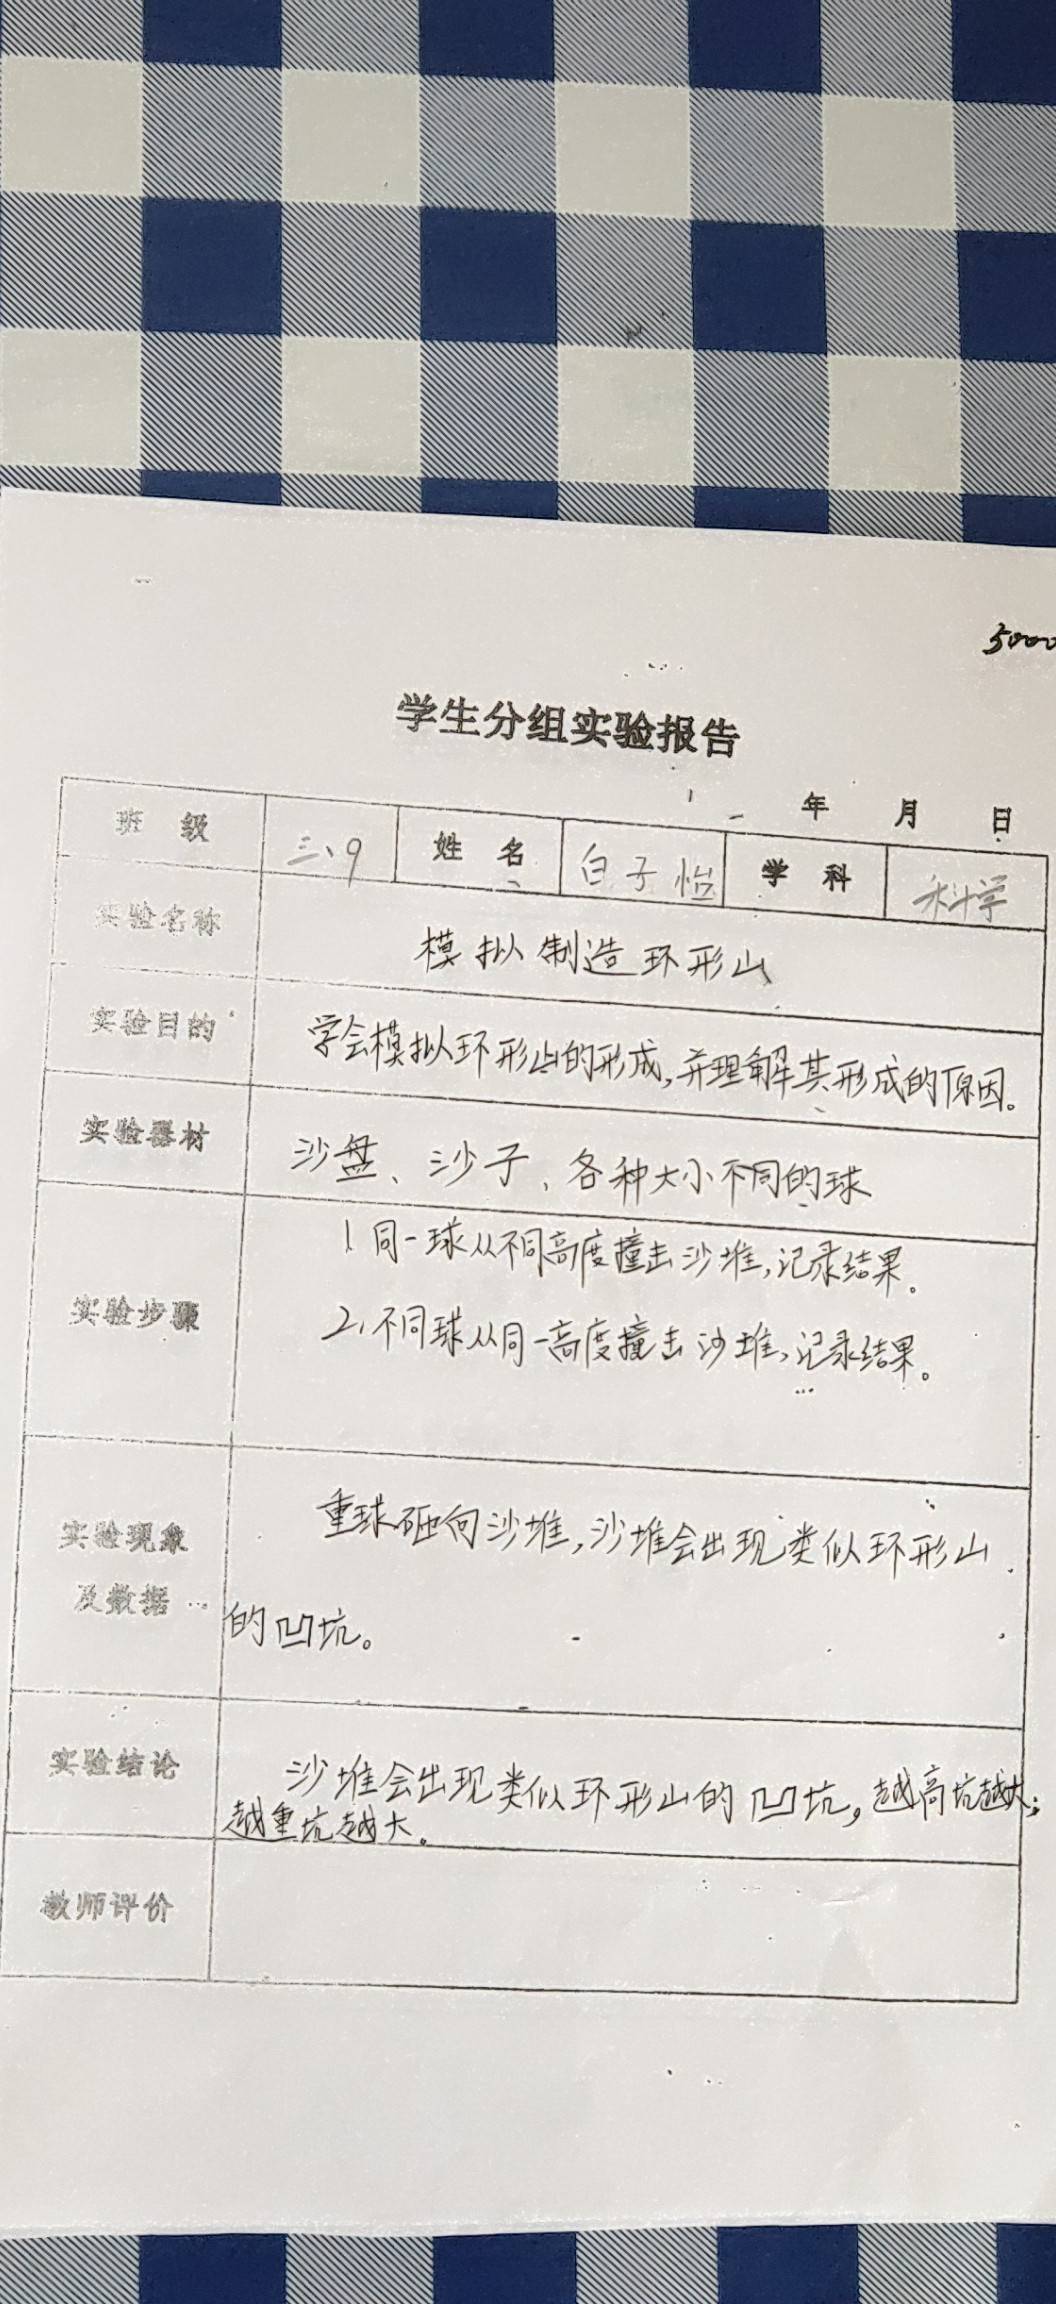 5000
学生分组实验报告
年 月 日
班 级 三、9 姓 名 白子怡 学 科 科学
实验名称 模拟制造环形山
实验目的 学会模拟环形山的形成,并理解其形成的原因。
实验器材 沙盘、沙子、各种大小不同的球
实验步骤
1 同一球从不同高度撞击沙堆,记录结果。
2、不同球从同一高度撞击沙堆,记录结果。
实验现象
及数据
重球砸向沙堆,沙堆会出现类似环形山
的凹坑。
实验结论
沙堆会出现类似环形山的凹坑,越高坑越大;
越重坑越大。
教师评价